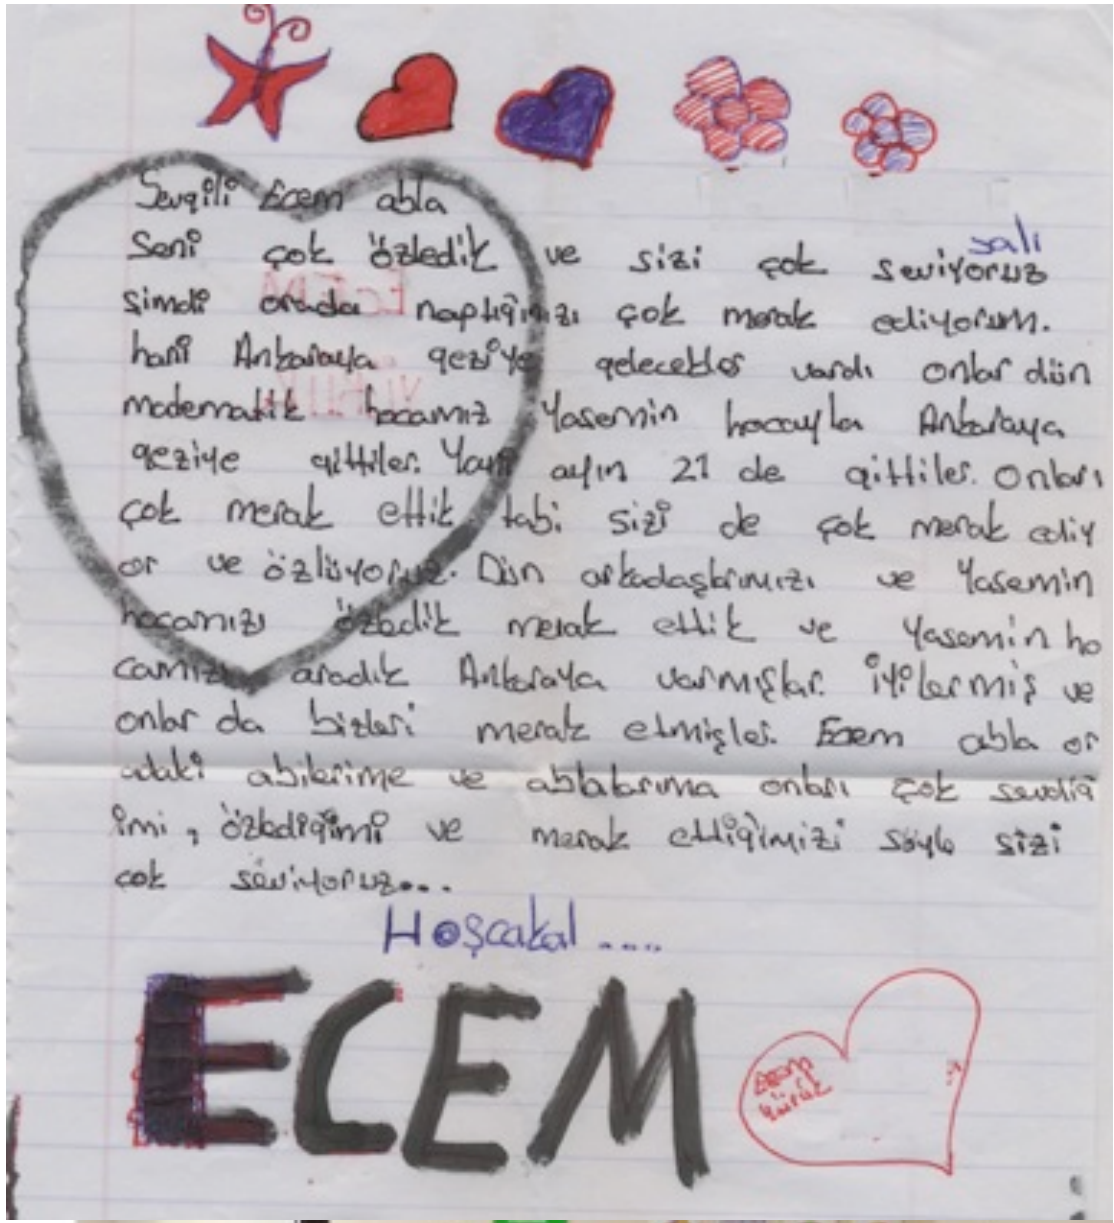 Sevgili Ecem abla
salı
Seni çok özledik ve sizi çok seviyoruz
şimdi orada naptığınızı çok merak ediyorum.
hani Ankaraya geziye gelecekler vardı onlar dün
matematik hocamız Yasemin hocayla Ankaraya
geziye gittiler. Yani ayın 21 de gittiler. Onları
çok merak ettik tabi sizi de çok merak ediy
or ve özlüyoruz. Dün arkadaşlarımızı ve Yasemin
hocamızı özledik merak ettik ve Yasemin ho
camızı aradık Ankaraya varmışlar. İyilermiş ve
onlar da bizleri merak etmişler. Ecem abla or
adaki abilerime ve ablalarıma onları çok sevdiğ
imi, özlediğimi ve merak ettiğimizi söyle sizi
çok seviyoruz...
Hoşcakal ....
ECEM
Ecem